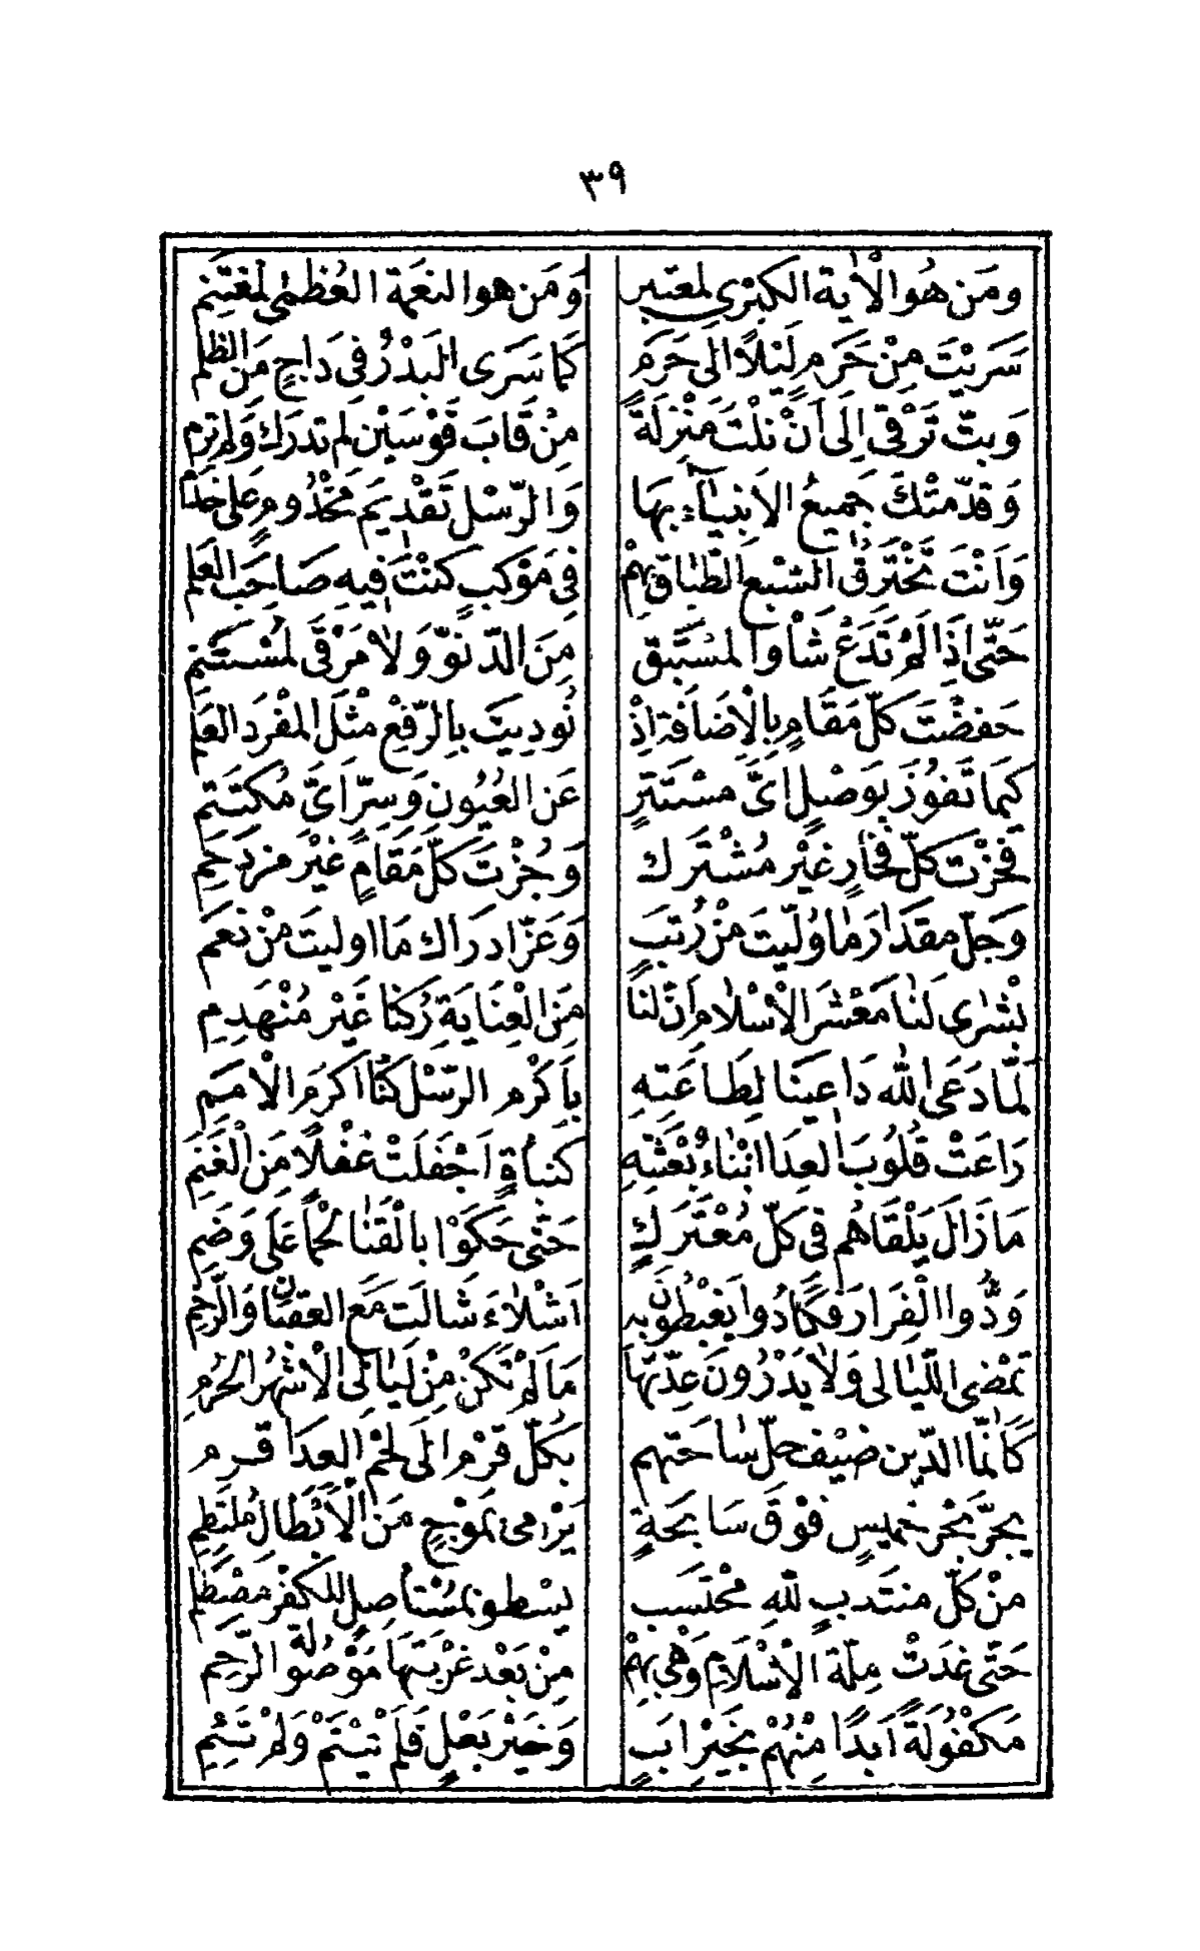 ٣٩
وَمَن هُوَ الْاٰيَة الكبْرٰى لمعتبرِ وَمَن هوا لنعمَة العُظمٰى لمُغتَنِم
سَرَيْتَ مِنْ حَرَمٍ لَيْلًا اِلَى حَرَمٍ كَمَا سَرَى البَدْرُ فِى دَاجٍ مَنَ الظلَم
وَبتّ تَرْقٰى اِلَى اَنْ نلْتَ مَنْزلَةً مِنْ قَابَ قَوْسَيْن لم تدرَك وَلم ترَم
وَقدّمَتْكَ جَميعُ الاَنبيَآءِ بهَا وَالرّسْل تَقْديَم مَخْدُومٍ عَلى خَدَم
وَاَنْتَ تَخْتَرقُ السّبْعَ الطّبَاقَ بهِمْ فِى مَوْكبٍ كنْتَ فيه صَاحبَ العَلَم
حَتّٰى اذَا لَمْ تَدَعْ شَاْوا لمسْتَبَق مِنَ الدّنوّ وَلَا مَرْقَى لمُسْتَنِم
خَفضْتَ كلّ مَقَامٍ بِالْاِضَافَة اِذْ نُودِيتَ بِالرّفْعِ مثْلَ المفْرَد العَلَم
كَيمَا تَفُوزَ بوَصْلٍ اىِّ مسْتَترٍ عَن العُيُونِ وَسِرٍّ اَىِّ مُكتَتَمِ
فَحزْتَ كلّ فخَارٍ غَيْر مُشْتَرك وَجُزْتَ كلّ مَقَامٍ غَيْر مزدَحَمِ
وَجلّ مقدَار مَا وُلّيتَ منْ رُتبٍ وَعَزّ ادرَاك مَا اوليتَ منْ نعَم
بُشْرٰى لَنَا مَعْشَرَ الْاِسْلَام اَنّ لنَا مِنَ الْعِنَايَةِ رُكنًا غَيْر مُنْهَدِمِ
لَمّا دَعَى اللّٰه دَاعينَا لِطَاعَتِهِ بِاَكْرَم الرّسْل كنّا اكرَمَ الْاُمَمِ
رَاعَتْ قُلُوبَ الْعِدَا انْبَاءُ بعْثَتِه كَنبْأَةٍ اَجْفَلَتْ غُفْلًا مِنَ الْغَنَمِ
مَا زَالَ يَلْقَاهُم فى كلّ مُعْتَرَكٍ حَتّٰى حَكَوْا بالْقَنَا لَحْمًا عَلَى وَضَمِ
وَدُّوا الْفِرَارَ فَكَادُوا يَغْبِطُونَ به اَشْلَاءَ شَالَت مَعَ العقبَان وَالرَّخَمِ
تمْضِى اللّيَالى وَلَا يَدْرُونَ عِدّتَهَا مَا لَمْ تَكنْ مِنْ لَيَالِى الْاَشْهُر الْحُرُمِ
كَانّمَا الدّين ضَيْف حلّ سَاحَتَهم بكلّ قرْم الَى لحْم العدَا قَرِم
يجرّ بحْرَ خَميسٍ فَوْقَ سَابحَةٍ يَرْمى بمَوْجٍ مَنَ الْاَبْطَال مُلتَطِم
منْ كلّ منتَدبٍ للّٰهِ مُحْتَسب يسْطو بمسْتأصِل للكفْر مصْطَلِم
حَتّٰى غدَتْ مِلّة الْاِسْلَام وَهْى بهمْ مِنْ بَعْد غرْبَتهَا مَوْصُولَةَ الرّحِم
مَكْفُولَةً اَبَدًا مِنْهُمْ بخَيْر اَبٍ وَخَيْر بَعْلٍ فَلَمْ تَيْتَمْ وَلَمْ تَئِمِ